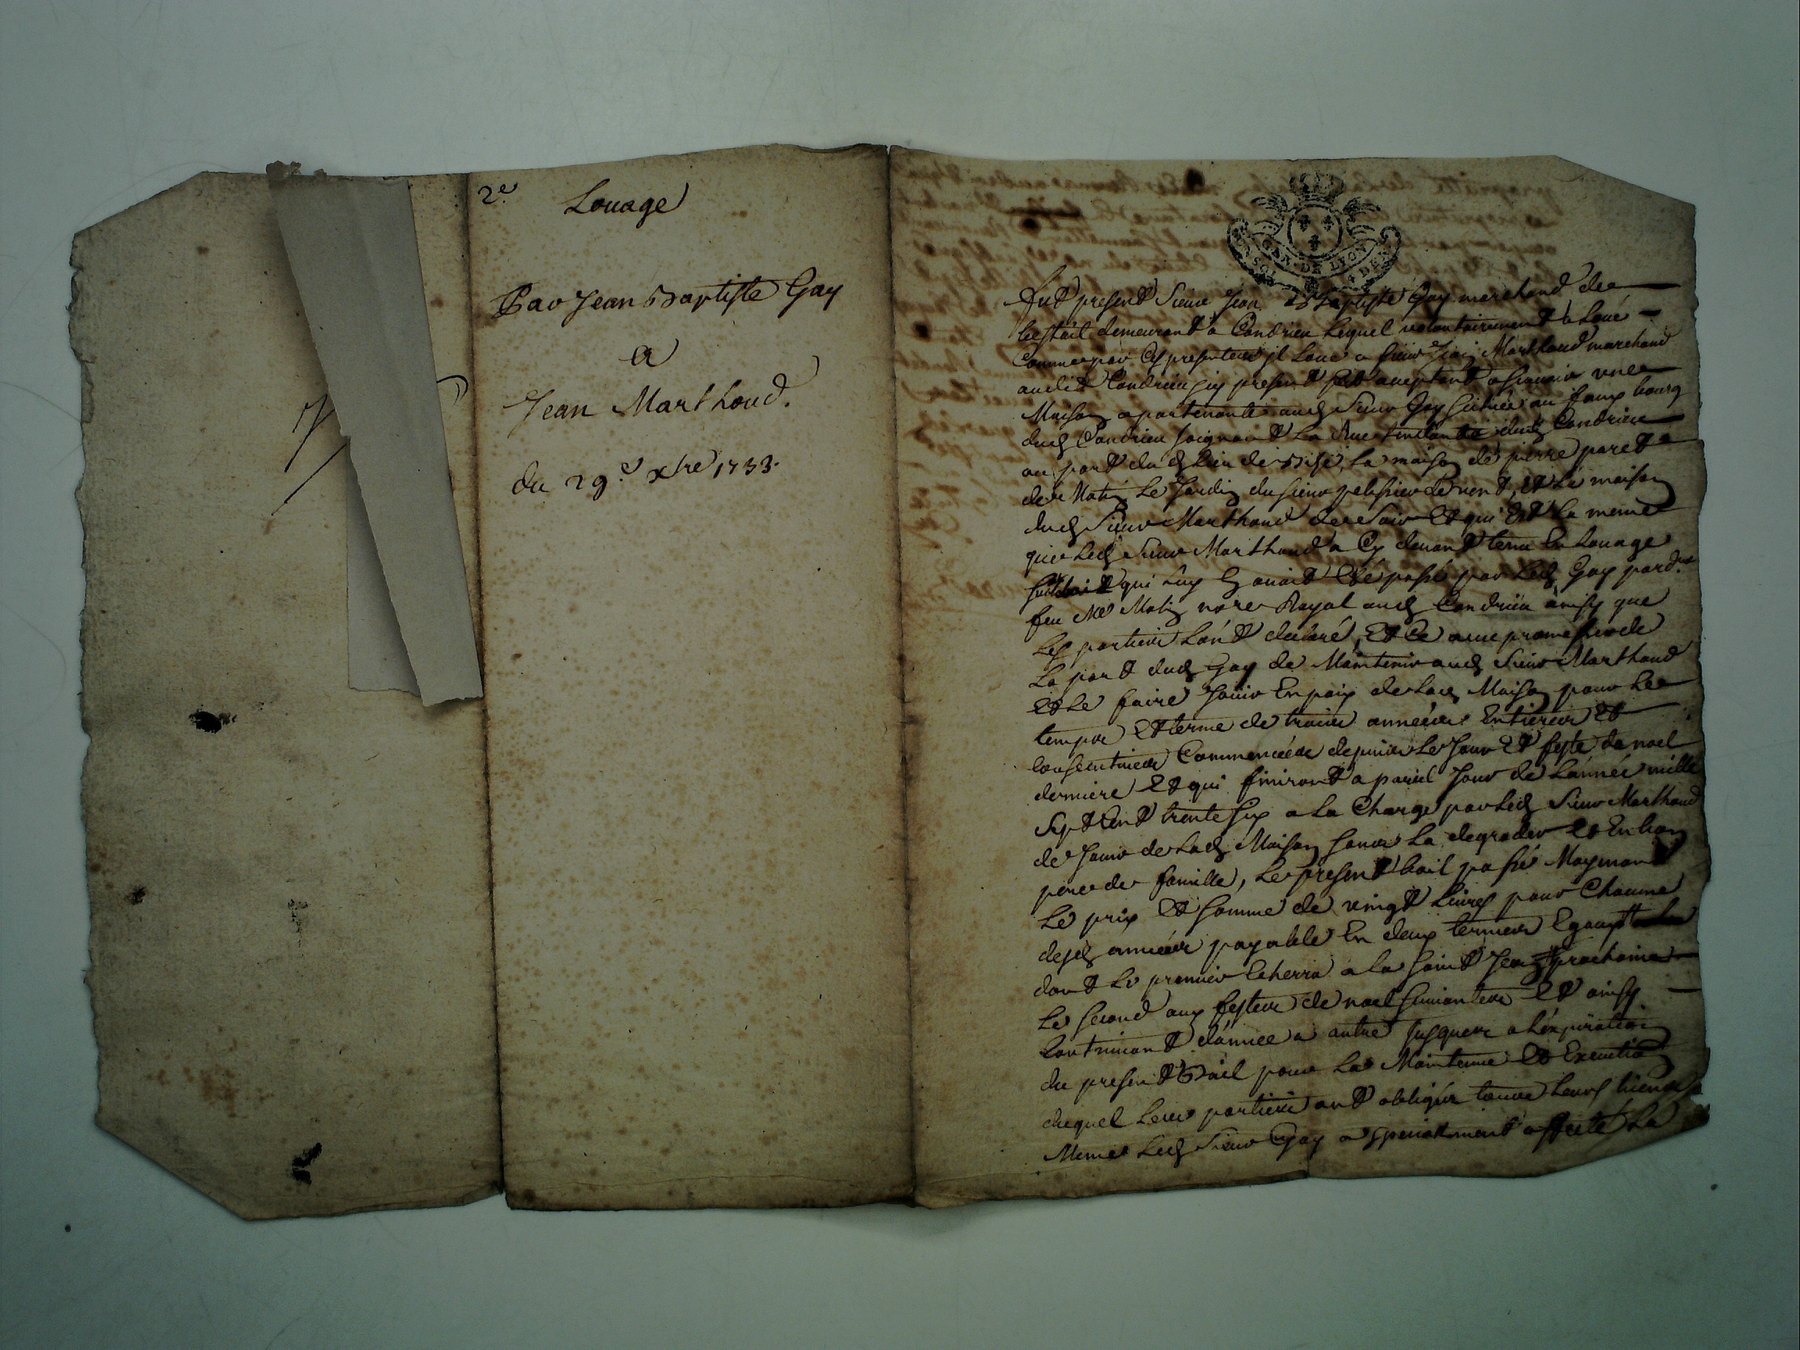 2e
Louage
Par Jean Baptiste Gay
a
Jean Marthoud.
du 29e xbre 1733.
GEN. DE LYON
Fut present Sieur Jean Baptiste Gay marchand de
bestail demeurant a Condrieu lequel volontairement a Loué
Comme par Ces presentes il Loue a Sieur Jean Marthoud marchand
audit Condrieu icy present et acceptant a sçavoir une
Maison apartenante aud Sieur Gay scituée au faux bourg
dud Condrieu joignant La Rue tendante dud Condrieu
au port dud Lieu de Bise, La maison de pierre paret
de Matin Le Jardin du sieur pelissier de vent, et La maison
dud Sieur Marthoud de Soir Et qui Est La meme
que Led Sieur Marthoud a Cy devant tenu En Louage
qui Luy En avoit Eté passé par Led Gay pard.t
feu Me Matin no.re Royal aud Condrieu ainsy que
Les parties L'ont declaré, Et Ce avec promesse de
La part dud Gay de Maintenir aud Sieur Marthoud
Et Le faire Jouir En paix de Lad Maison pour Le
temps Et terme de trois années Entieres Et
Consecutives Commencées depuis Le Jour Et feste de noel
derniere Et qui finiront a pareil Jour de L'année mille
Sept Cent trente Six a La Charge par Led Sieur Marthoud
de Jouir de Lad Maison sans La degrader Et En bon
pere de famille, Le present bail passé Moyenant
Le prix Et somme de vingt Livres pour Chacune
desd années payable En deux termes Egaux
dont Le premier Echerra a La Saint Jean prochaine
Le Second aux festes de noel suivantes Et ainsy
Continuant d'année a autre Jusques a L'expiration
du present Bail pour La Maintenue Et Execution
duquel Les parties ont obligés tous Leurs biens
Meme Led Sieur Gay a specialement affecté La